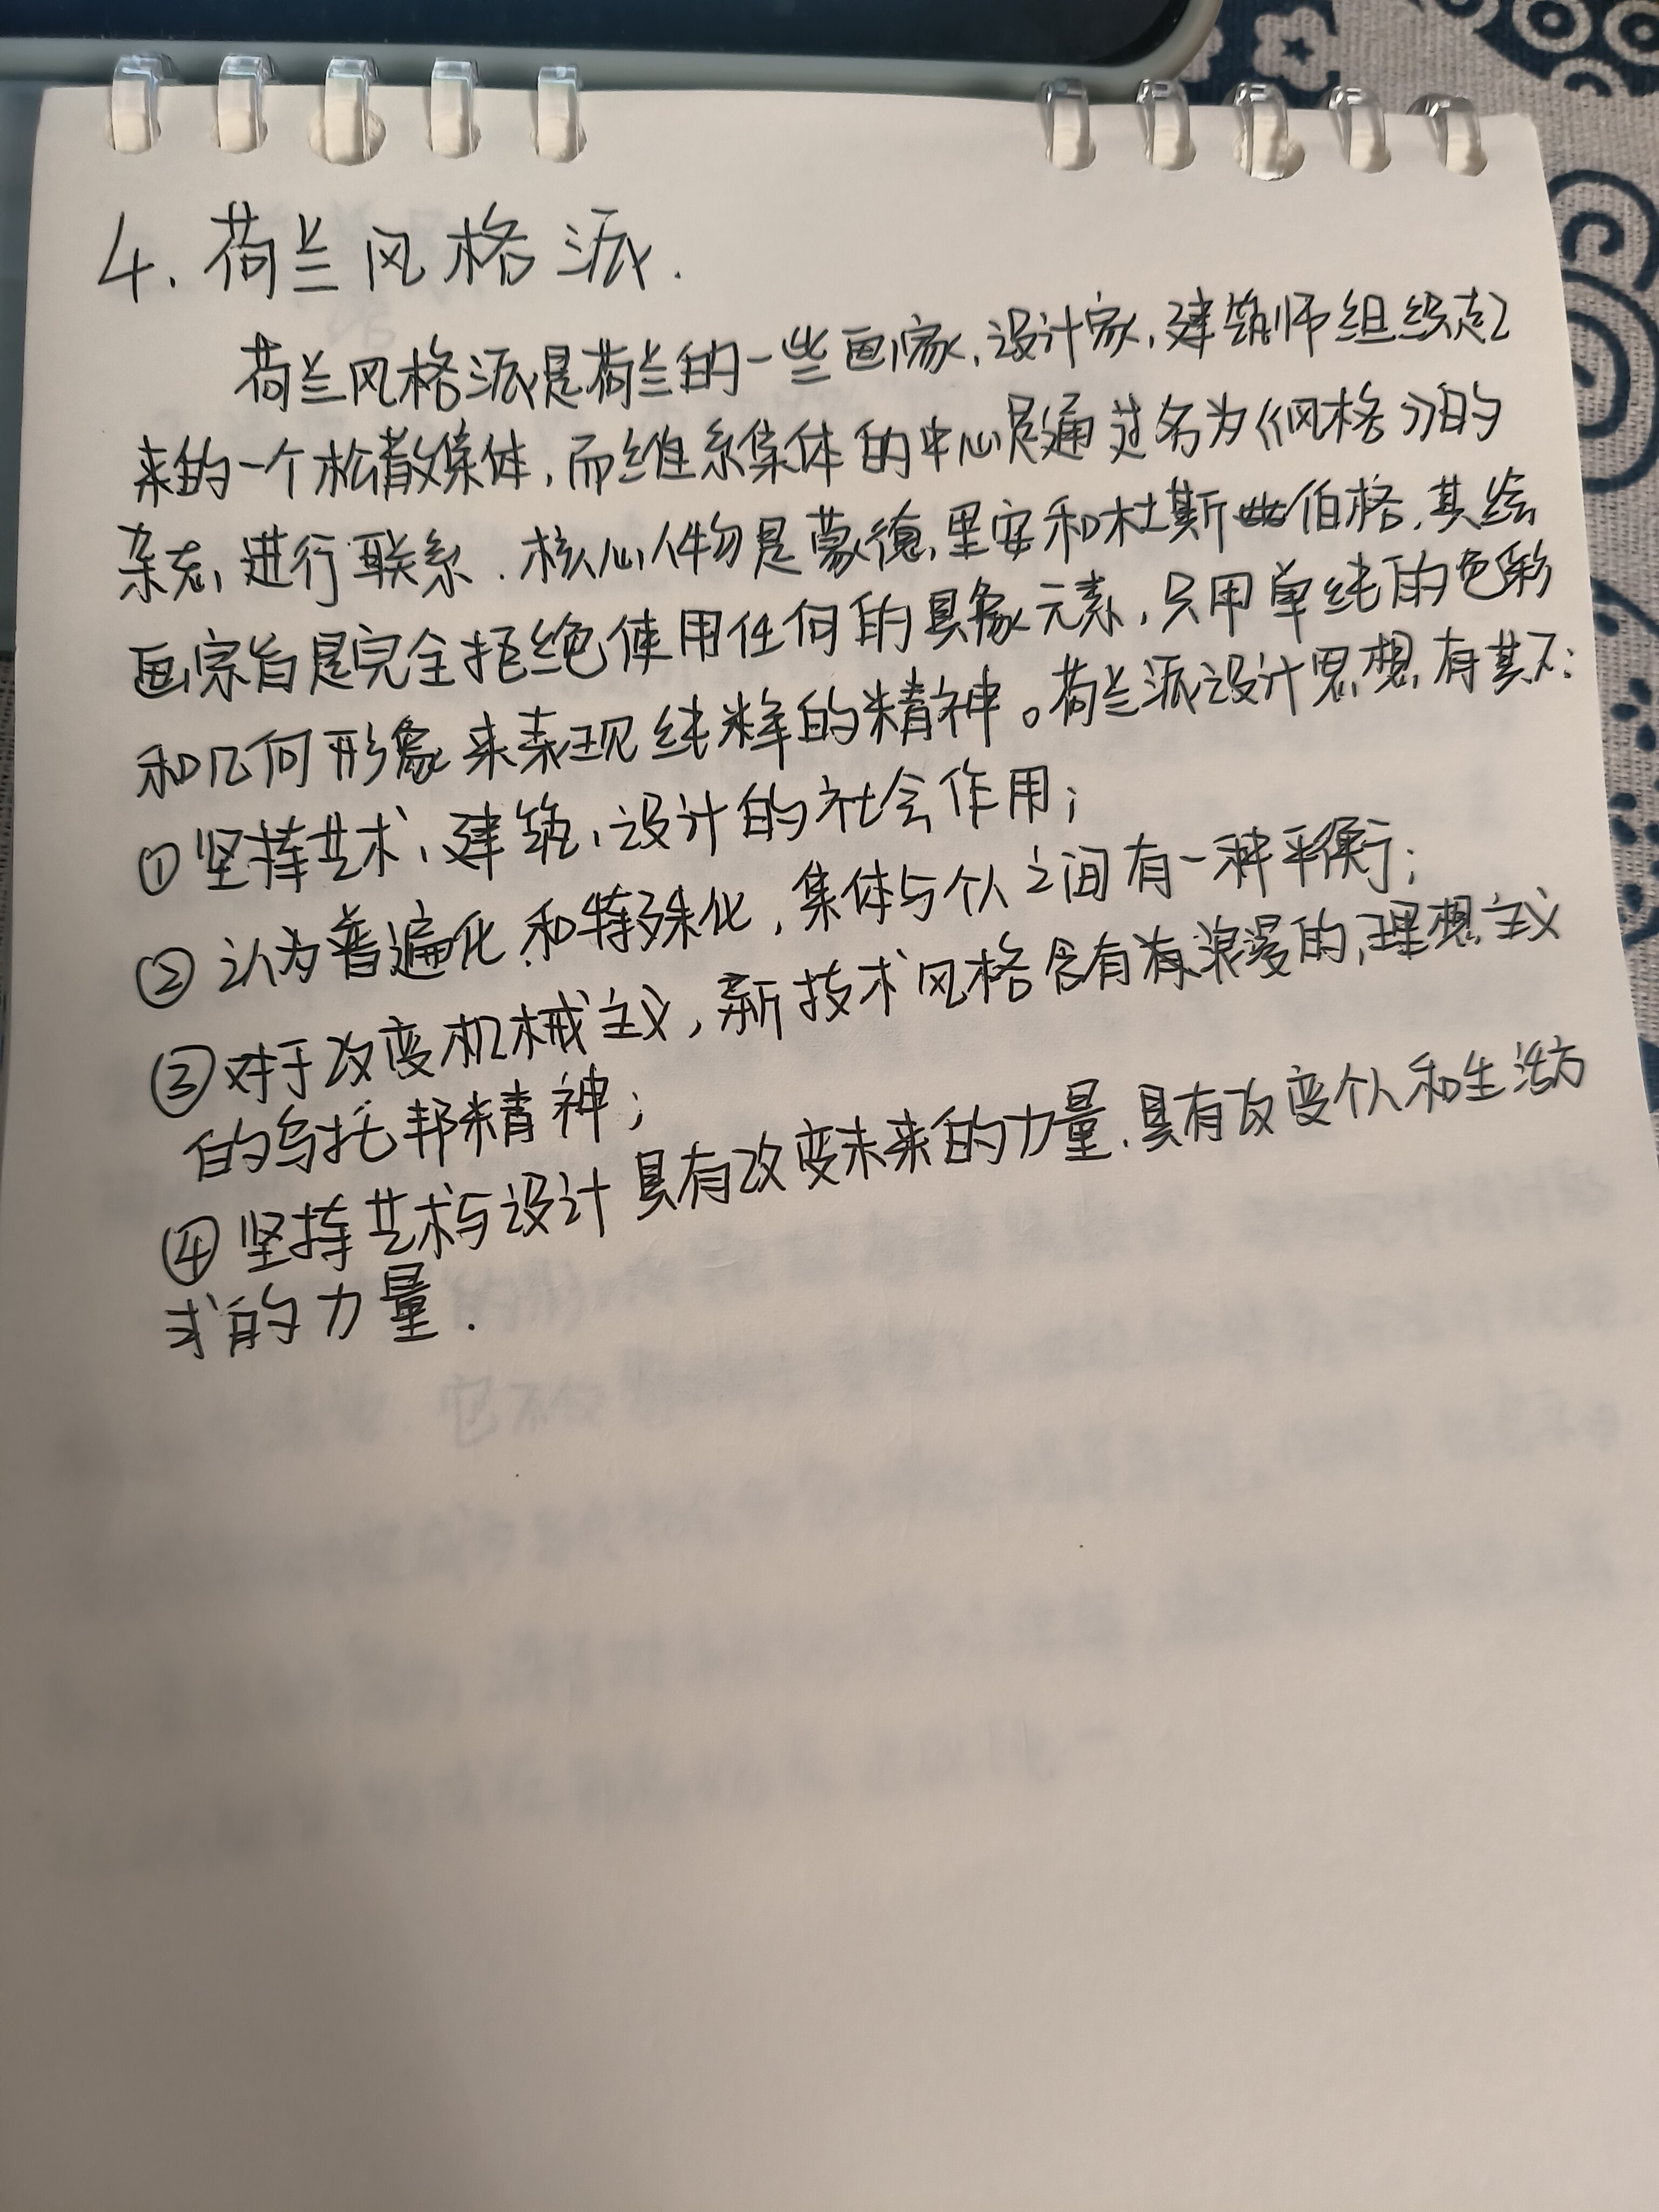 4. 荷兰风格派.
荷兰风格派是荷兰的一些画家、设计家、建筑师组织起
来的一个松散集体,而维系集体的中心是通过名为《风格》的
杂志,进行联系.核心人物是蒙德里安和杜斯伯格,其绘
画宗旨是完全拒绝使用任何的具象元素,只用单纯的色彩
和几何形象来表现纯粹的精神。荷兰派设计思想,有其下:
①坚持艺术、建筑、设计的社会作用;
②认为普遍化和特殊化,集体与个人之间有一种平衡;
③对于改变机械主义,新技术风格含有有浪漫的,理想主义
的乌托邦精神;
④坚持艺术与设计具有改变未来的力量、具有改变个人和生活方
式的力量.